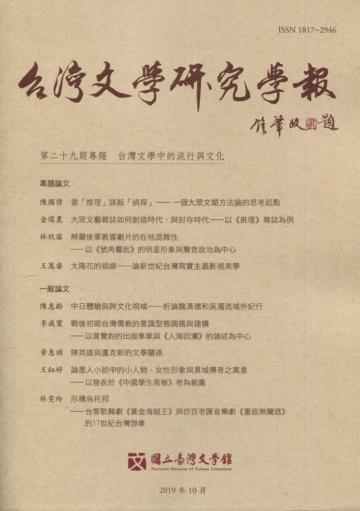 ISSN 1817-2946
台灣文學研究學報
第二十九期專題 台灣文學中的流行與文化
專題論文
陳國偉 當「推理」謀殺「偵探」—— 一個大眾文類方法論的思考起點
金儒農 大眾文藝雜誌如何創造時代、與封存時代——以《推理》雜誌為例
林奴霜 解嚴後軍教喜劇片的在地混雜性
——以《號角響起》的明星形象與聲音政治為中心
王萬睿 太陽花的視線——論新世紀台灣寫實主義影視美學
一般論文
陳惠齡 中日體驗與跨文化視域——析論魏清德和吳濁流域外紀行
李威寰 戰後初期台灣儒教的意識型態調適與建構
——以黃贊鈞的出版事業與《人海回瀾》的論述為中心
黃惠禎 陳英雄與盧克彰的文學關係
王鈺婷 論墨人小說中的小人物、女性形象與異域傳奇之寓意
——以發表於《中國學生周報》者為範圍
林雯玲 形構烏托邦
——台客歌舞劇《黃金海賊王》與仿百老匯音樂劇《重返熱蘭遮》
的17世紀台灣想像
國立臺灣文學館
National Museum of Taiwan Literature
2019 年 10 月